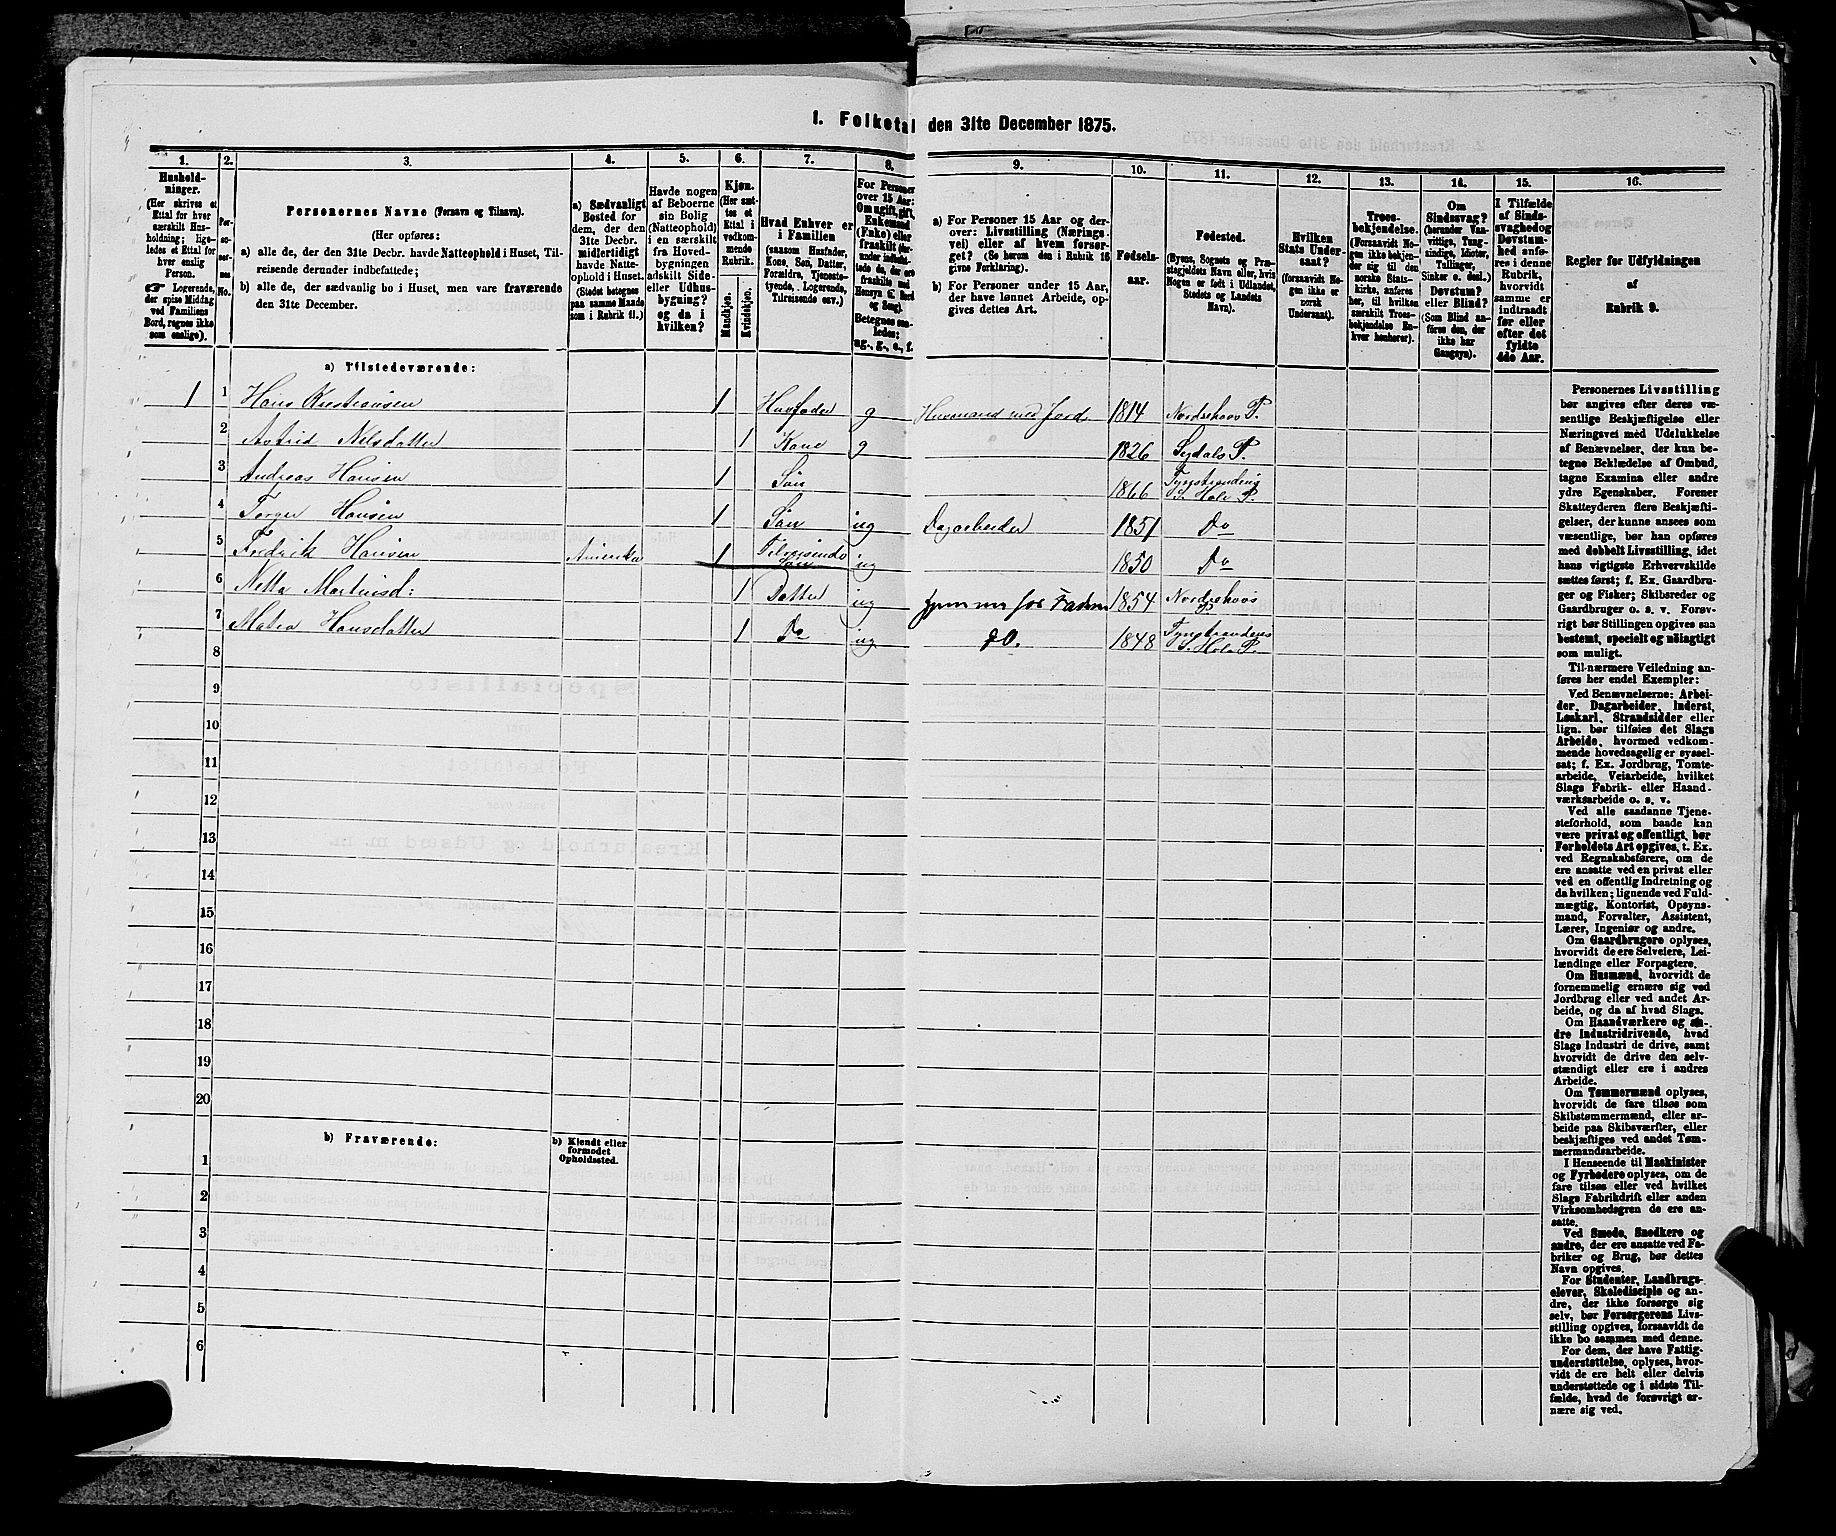 1. Folketal den 31te December 1875.
1. 2. 3. 4. 5. 6. 7. 8. 9. 10. 11. 12. 13. 14. 15. 16.
Hushold-
ninger.
(Her skrives et
Ettal for hver
særskilt Hus-
holdning; lige-
ledes et Ettal for
hver enslig
Person.
☛ Logerende,
der spise Middag
ved Familiens
Bord, regnes ikke
som enslige).
Per-
so-
ner-
nes
No.
Personernes Navne (Fornavn og Tilnavn).
(Her opføres:
a) alle de, der den 31te Decbr. havde Natteophold i Huset, Til-
reisende derunder indbefattede;
b) alle de, der sædvanlig bo i Huset, men vare fraværende
den 31te December.
a) Sædvanligt
Bosted for
dem, der den
31te Decbr.
midlertidigt
havde Natte-
ophold i Huset.
(Stedet betegnes
paa samme Maade
som i Rubrik 11.)
Havde nogen
af Beboerne
sin Bolig
(Natteophold)
i en særskilt
fra Hoved-
bygningen
adskilt Side-
eller Udhus-
bygning?
og da i
hvilken?
Kjøn.
(Her sæt-
tes et
Ettal i
vedkom-
mende
Rubrik.
Mandkjøn.
Kvindekjøn.
Hvad Enhver er
i Familien
(saasom Husfader,
Kone, Søn, Datter,
Forældre, Tjeneste-
tyende, Logerende,
Tilreisende osv.)
For Personer
over 15 Aar:
Om ugift, gift,
Enkemand
(Enke) eller
fraskilt
Betegnes saa-
ledes:
ug., g., e., f.
a) For Personer 15 Aar og der-
over: Livsstilling (Nærings-
vei) eller af hvem forsør-
get? (Se herom den i Rubrik 16
givne Forklaring).
b) For Personer under 15 Aar,
der have lønnet Arbeide, op-
gives dettes Art.
Fødsels-
aar.
Fødested.
(Byens, Sognets og Præ-
stegjeldets Navn eller, hvis
Nogen er født i Udlandet,
Stedets og Landets
Navn).
Hvilken
Stats Under-
saat?
(forsaavidt No-
gen ikke er
norsk
Undersaat).
Troes-
bekjendelse.
(Forsaavidt No-
gen ikke bekjen-
der sig til den
norske Stats-
kirke, anføres
her, til hvilken
særskilt Troes-
bekjendelse En-
hver henhører).
Om
Sindssvag?
(herunder Van-
vittige, Tung-
sindige, Idioter,
Tullinger,
Sinker o. desl.)
Døvstum?
eller Blind?
(Som Blind an-
føres den, der
ikke har
Gangsyn).
I Tilfælde
af Sinds-
svaghed og
Døvstum-
hed anfø-
res i denne
Rubrik,
hvorvidt
samme er
indtraadt
før eller
efter det
fyldte
4de Aar.
Regler for Udfyldningen
af
Rubrik 9.
a) Tilstedeværende:
1 1 Hans Kristiansen 1 Husfader g Husmand med Jord 1814 Nordrehoos P.
2 Astrid Nilsdatter 1 Kone g 1826 Sigdals P.
3 Andreas Hansen 1 Søn 1866 Tyristranding S. Hole P.
4 Torger Hansen 1 Søn ug Dagarbeider 1851 Do
5 Fredrik Hansen Amerika 1 Tilreisende Søn ug 1850 Do
6 Netta Martinsd: 1 Datter ug hjemme hos Faderen 1854 Nordrehoos P.
7 Matea Hansdatter 1 Do ug do. 1848 Tyristrandens S. Hole P.
8
9
10
11
12
13
14
15
16
17
18
19
20
b) Fraværende:
b) Kjendt eller
formodet
Opholdssted.
1
2
3
4
5
6
Personernes Livsstilling
bør angives efter deres væ-
sentlige Beskjæftigelse eller
Næringsvei med Udelukkelse
af Benævnelser, der kun be-
tegne Beklædelse af Ombud,
tagne Examina eller andre
ydre Egenskaber. Forener
Skatteyderen flere Beskjæfti-
gelser, der kunne ansees som
væsentlige, bør han opføres
med dobbelt Livsstilling, idet
hans vigtigste Erhvervskilde
sættes først; f. Ex. Gaardbru-
ger og Fisker; Skibsreder og
Gaardbruger o. s. v. Forøv-
rigt bør Stillingen opgives saa
bestemt, specielt og nøiagtigt
som muligt.
Til nærmere Veiledning an-
føres her endel Exempler:
Ved Benævnelserne: Arbei-
der, Dagarbeider, Inderst,
Løskarl, Strandsidder eller
lign. bør tilføies det Slags
Arbeide, hvormed vedkom-
mende hovedsagelig er syssel-
sat; f. Ex. Jordbrug, Tomte-
arbeide, Veiarbeide, hvilket
Slags Fabrik- eller Haand-
værksarbeide o. s. v.
Ved alle saadanne Tjene-
steforhold, som baade kan
være privat og offentligt, bør
Forholdets Art opgives, t. Ex.
ved Regnskabsførere, om de
ere ansatte ved en privat eller
ved en offentlig Indretning og
da hvilken; lignende ved Fuld-
mægtig, Kontorist, Opsyns-
mand, Forvalter, Assistent,
Lærer, Ingeniør og andre.
Om Gaardbrugere oplyses,
hvorvidt de ere Selveiere, Lei-
lændinge eller Forpagtere.
Om Husmænd, hvorvidt de
fornemmelig ernære sig ved
Jordbrug eller ved andet Ar-
beide, og da af hvad Slags.
Om Haandværkere og an-
dre Industridrivende, hvad
Slags Industri de drive, samt
hvorvidt de drive den selv-
stændigt eller ere i andres
Arbeide.
Om Tømmermænd oplyses,
hvorvidt de fare tilsøs som
Skibstømmermænd, eller ar-
beide paa Skibsværfter, eller
beskjæftiges ved andet Tøm-
mermandsarbeide.
I Henseende til Maskinister
og Fyrbødere oplyses, om de
fare tilsøs eller ved hvilket
Slags Fabrikdrift eller anden
Virksomhedsgren de ere an-
satte.
Ved Smede, Snedkere og
andre, der ere ansatte ved Fa-
briker og Brug, bør dettes
Navn opgives.
For Studenter, Landbrugs-
elever, Skoledisciple og an-
dre, der ikke forsørge sig
selv, bør Forsørgerens Livs-
stilling opgives, forsaavidt de
ikke bo sammen med denne.
For dem, der have Fattig-
understøttelse, oplyses, hvor-
vidt de ere helt eller delvis
understøttede og i sidste Til-
fælde, hvad de forøvrigt er-
nære sig ved.